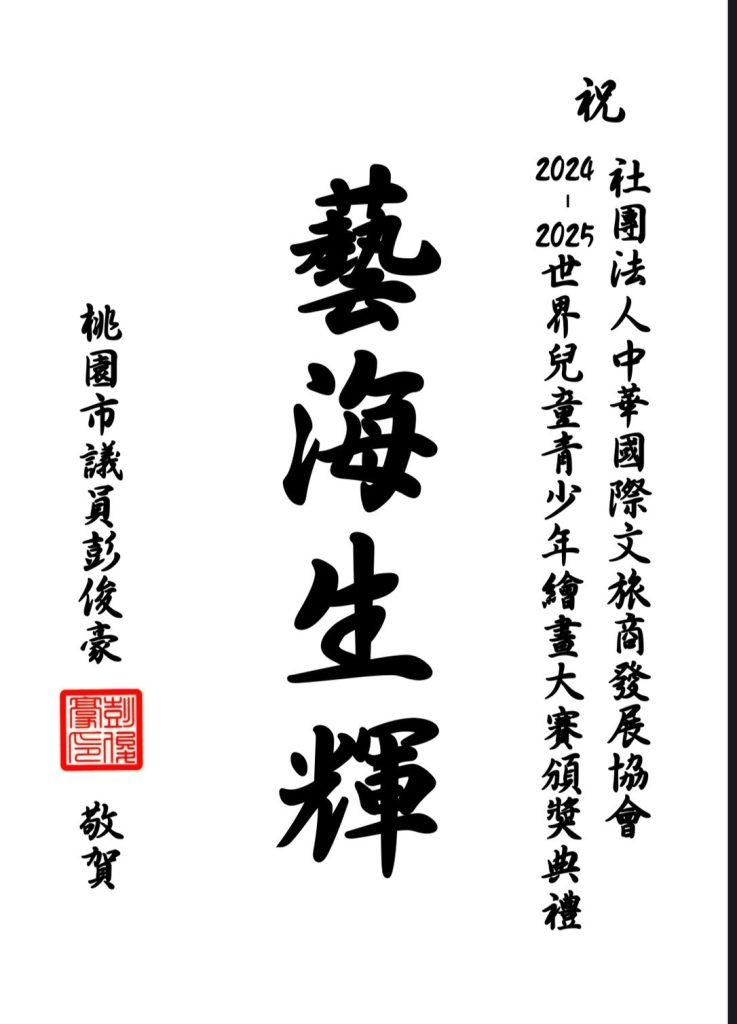 祝
社團法人中華國際文旅商發展協會
2024-2025世界兒童青少年繪畫大賽頒獎典禮
藝海生輝
桃園市議員彭俊豪
彭俊豪印
敬賀